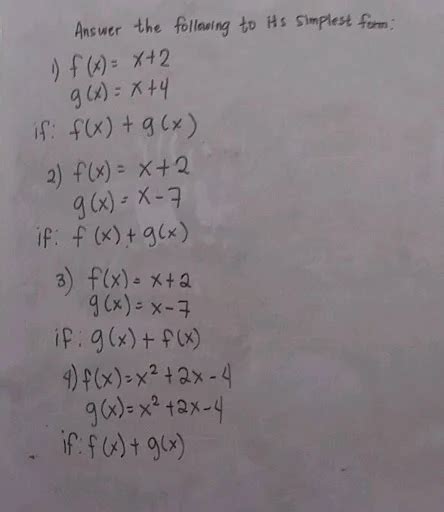 Answer the following to its simplest form:
1) f(x) = x+2
g(x) = x+4
if: f(x) + g(x)
2) f(x) = x+2
g(x) = x-7
if: f(x) + g(x)
3) f(x) = x+2
g(x) = x-7
if: g(x) + f(x)
4) f(x) = x² + 2x - 4
g(x) = x² + 2x - 4
if: f(x) + g(x)